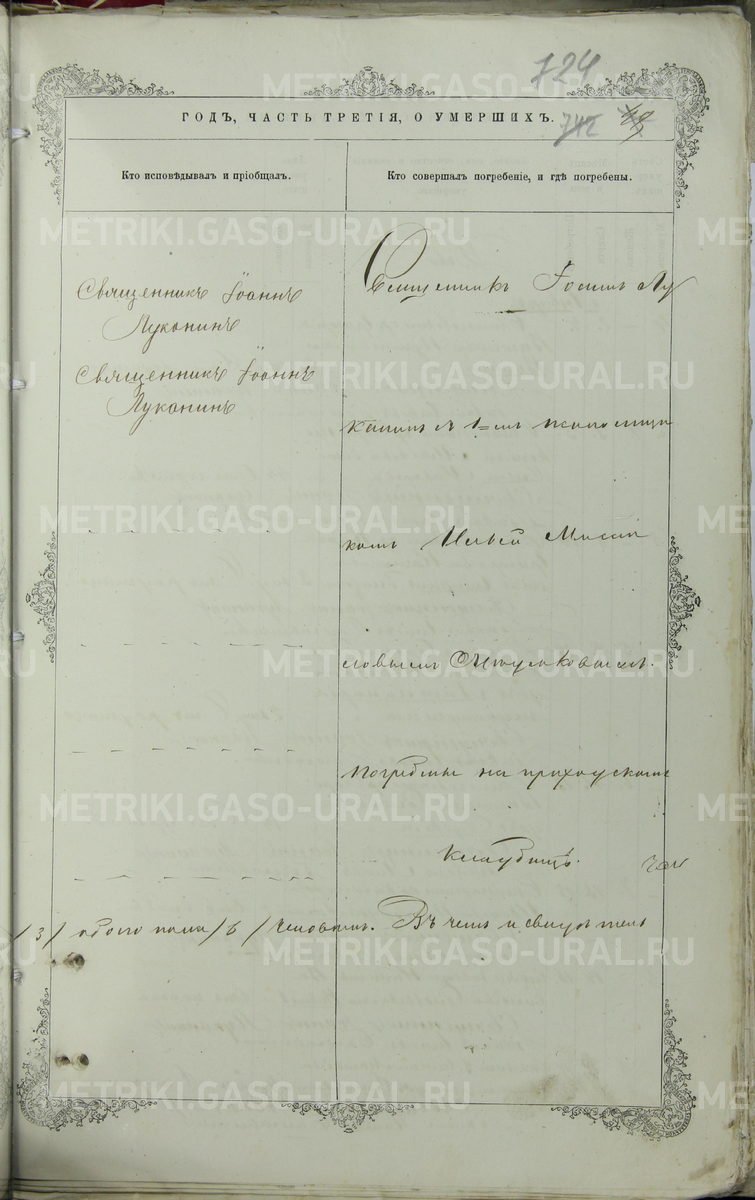 724
ГОДЪ, ЧАСТЬ ТРЕТІЯ, О УМЕРШИХЪ.
Кто исповѣдывалъ и пріобщалъ.
Кто совершалъ погребеніе, и гдѣ погребены.
Священникъ Іоаннъ
Луканинъ
Священникъ Іоаннъ
Луканинъ
Священникъ Іоаннъ Лу
канинъ съ псаломщи
комъ
погребены на приходскомъ
кладбищѣ.
/3/ обоего пола /6/ человѣкъ. Въ чемъ и свидѣтель
METRIKI.GASO-URAL.RU